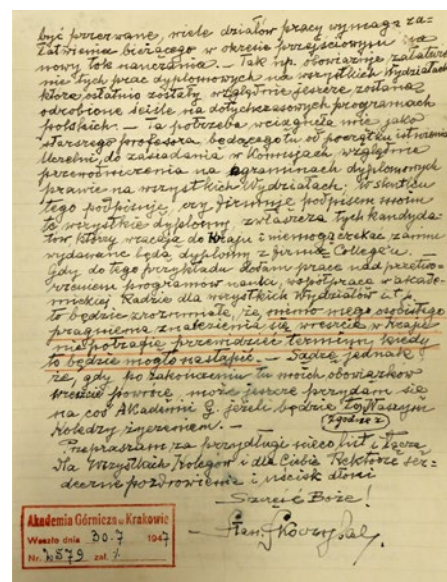 być przerwane, wiele działów pracy wymaga za-
łatwienia bieżącego w okresie przejściowym na
nowy tok nauczania. — Tak np. obowiązuje załatwie-
nie tych prac dyplomowych na wszystkich Wydziałach
które ostatnio zostały względnie jeszcze zostaną
odrobione ściśle na dotychczasowych programach
polskich. — Ta potrzeba wciągnęła mnie jako
starszego profesora będącego tu od początku istnienia
Uczelni, do zasiadania w Komisjach względnie
przewodniczenia na egzaminach dyplomowych
prawie na wszystkich Wydziałach; w skutku
tego podpisuję, czy firmuję podpisem swoim
te wszystkie dyplomy, zwłaszcza tych kandyda-
tów, którzy wracają do Kraju i nie mogą czekać zanim
wydawane będą dyplomy z firmą College'u.
Gdy do tego przykładu dodam pracę nad przetwo-
rzeniem programów nauki, współpracę w akade-
mickiej Radzie dla wszystkich Wydziałów i t.p.
to będzie zrozumiałe, że, mimo mego osobistego
pragnienia znalezienia się wreszcie w Kraju
nie potrafię przewidzieć terminu, kiedy
to będzie mogło nastąpić. — Sądzę jednak
że, gdy po zakończeniu tu moich obowiązków
wreszcie powrócę, może jeszcze przydam się
na coś Akademii G. jeżeli będzie to Naszym
Koledzy życzeniem. — (zgodne z)
Przepraszam za przydługi nieco list i łączę
dla Wszystkich Kolegów i dla Ciebie Rektorze ser-
deczne pozdrowienia i uścisk dłoni
Szczęść Boże!
Stan. Skoczylas.
Akademia Górnicza w Krakowie
Weszło dnia 30.7 1947
Nr. 2579 zał.